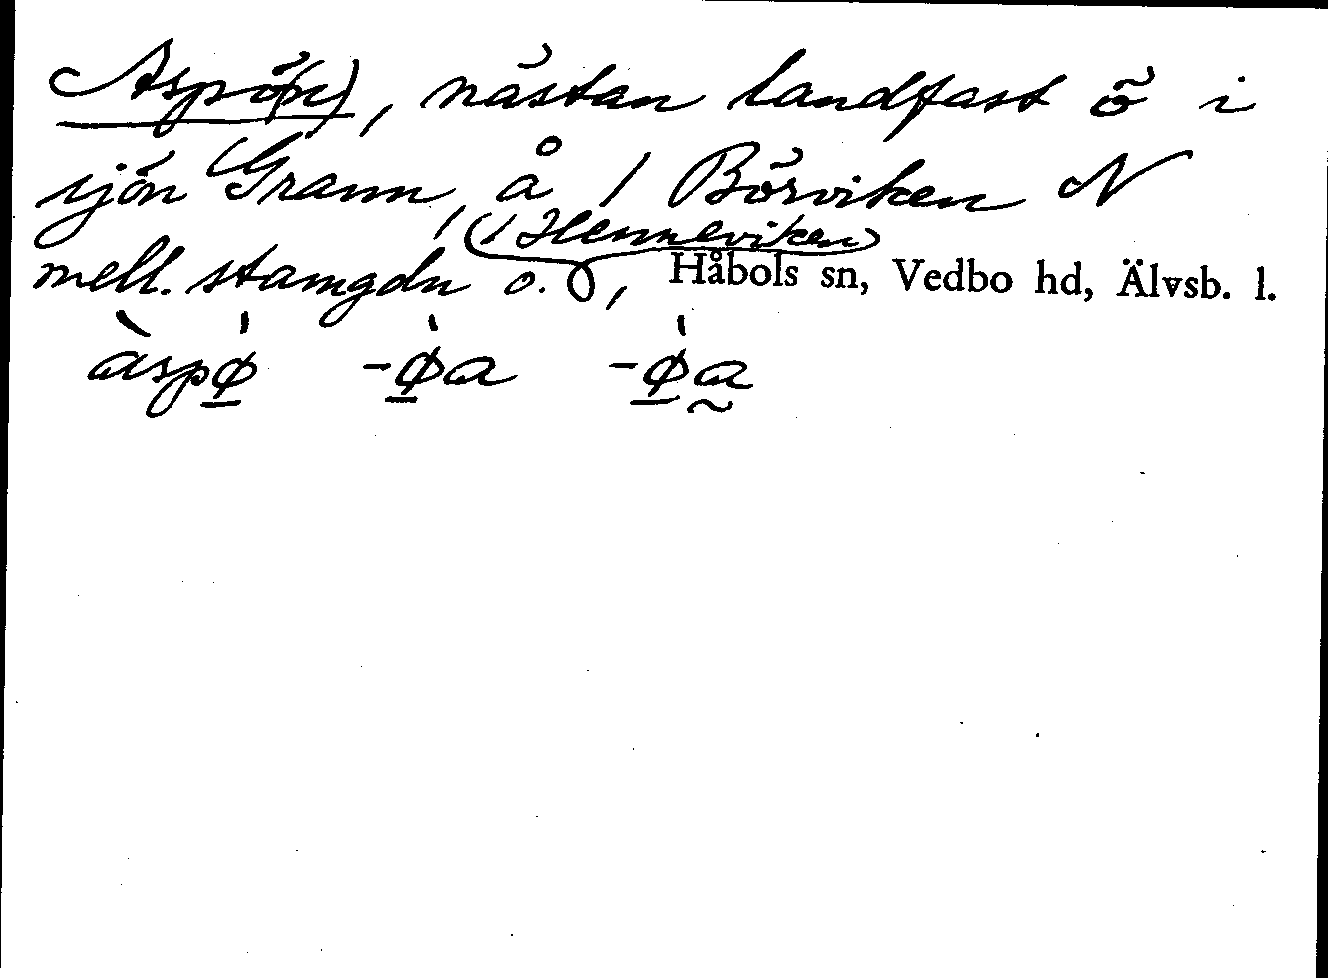 Aspö(n), nästan landfast ö i
sjön Grann, å 1 Börviken N
mell. stamgdn o. (1 Henneviken), Håbols sn, Vedbo hd, Älvsb. l.
àspø̱̍ -ø̱̍a -ø̱̍a̰